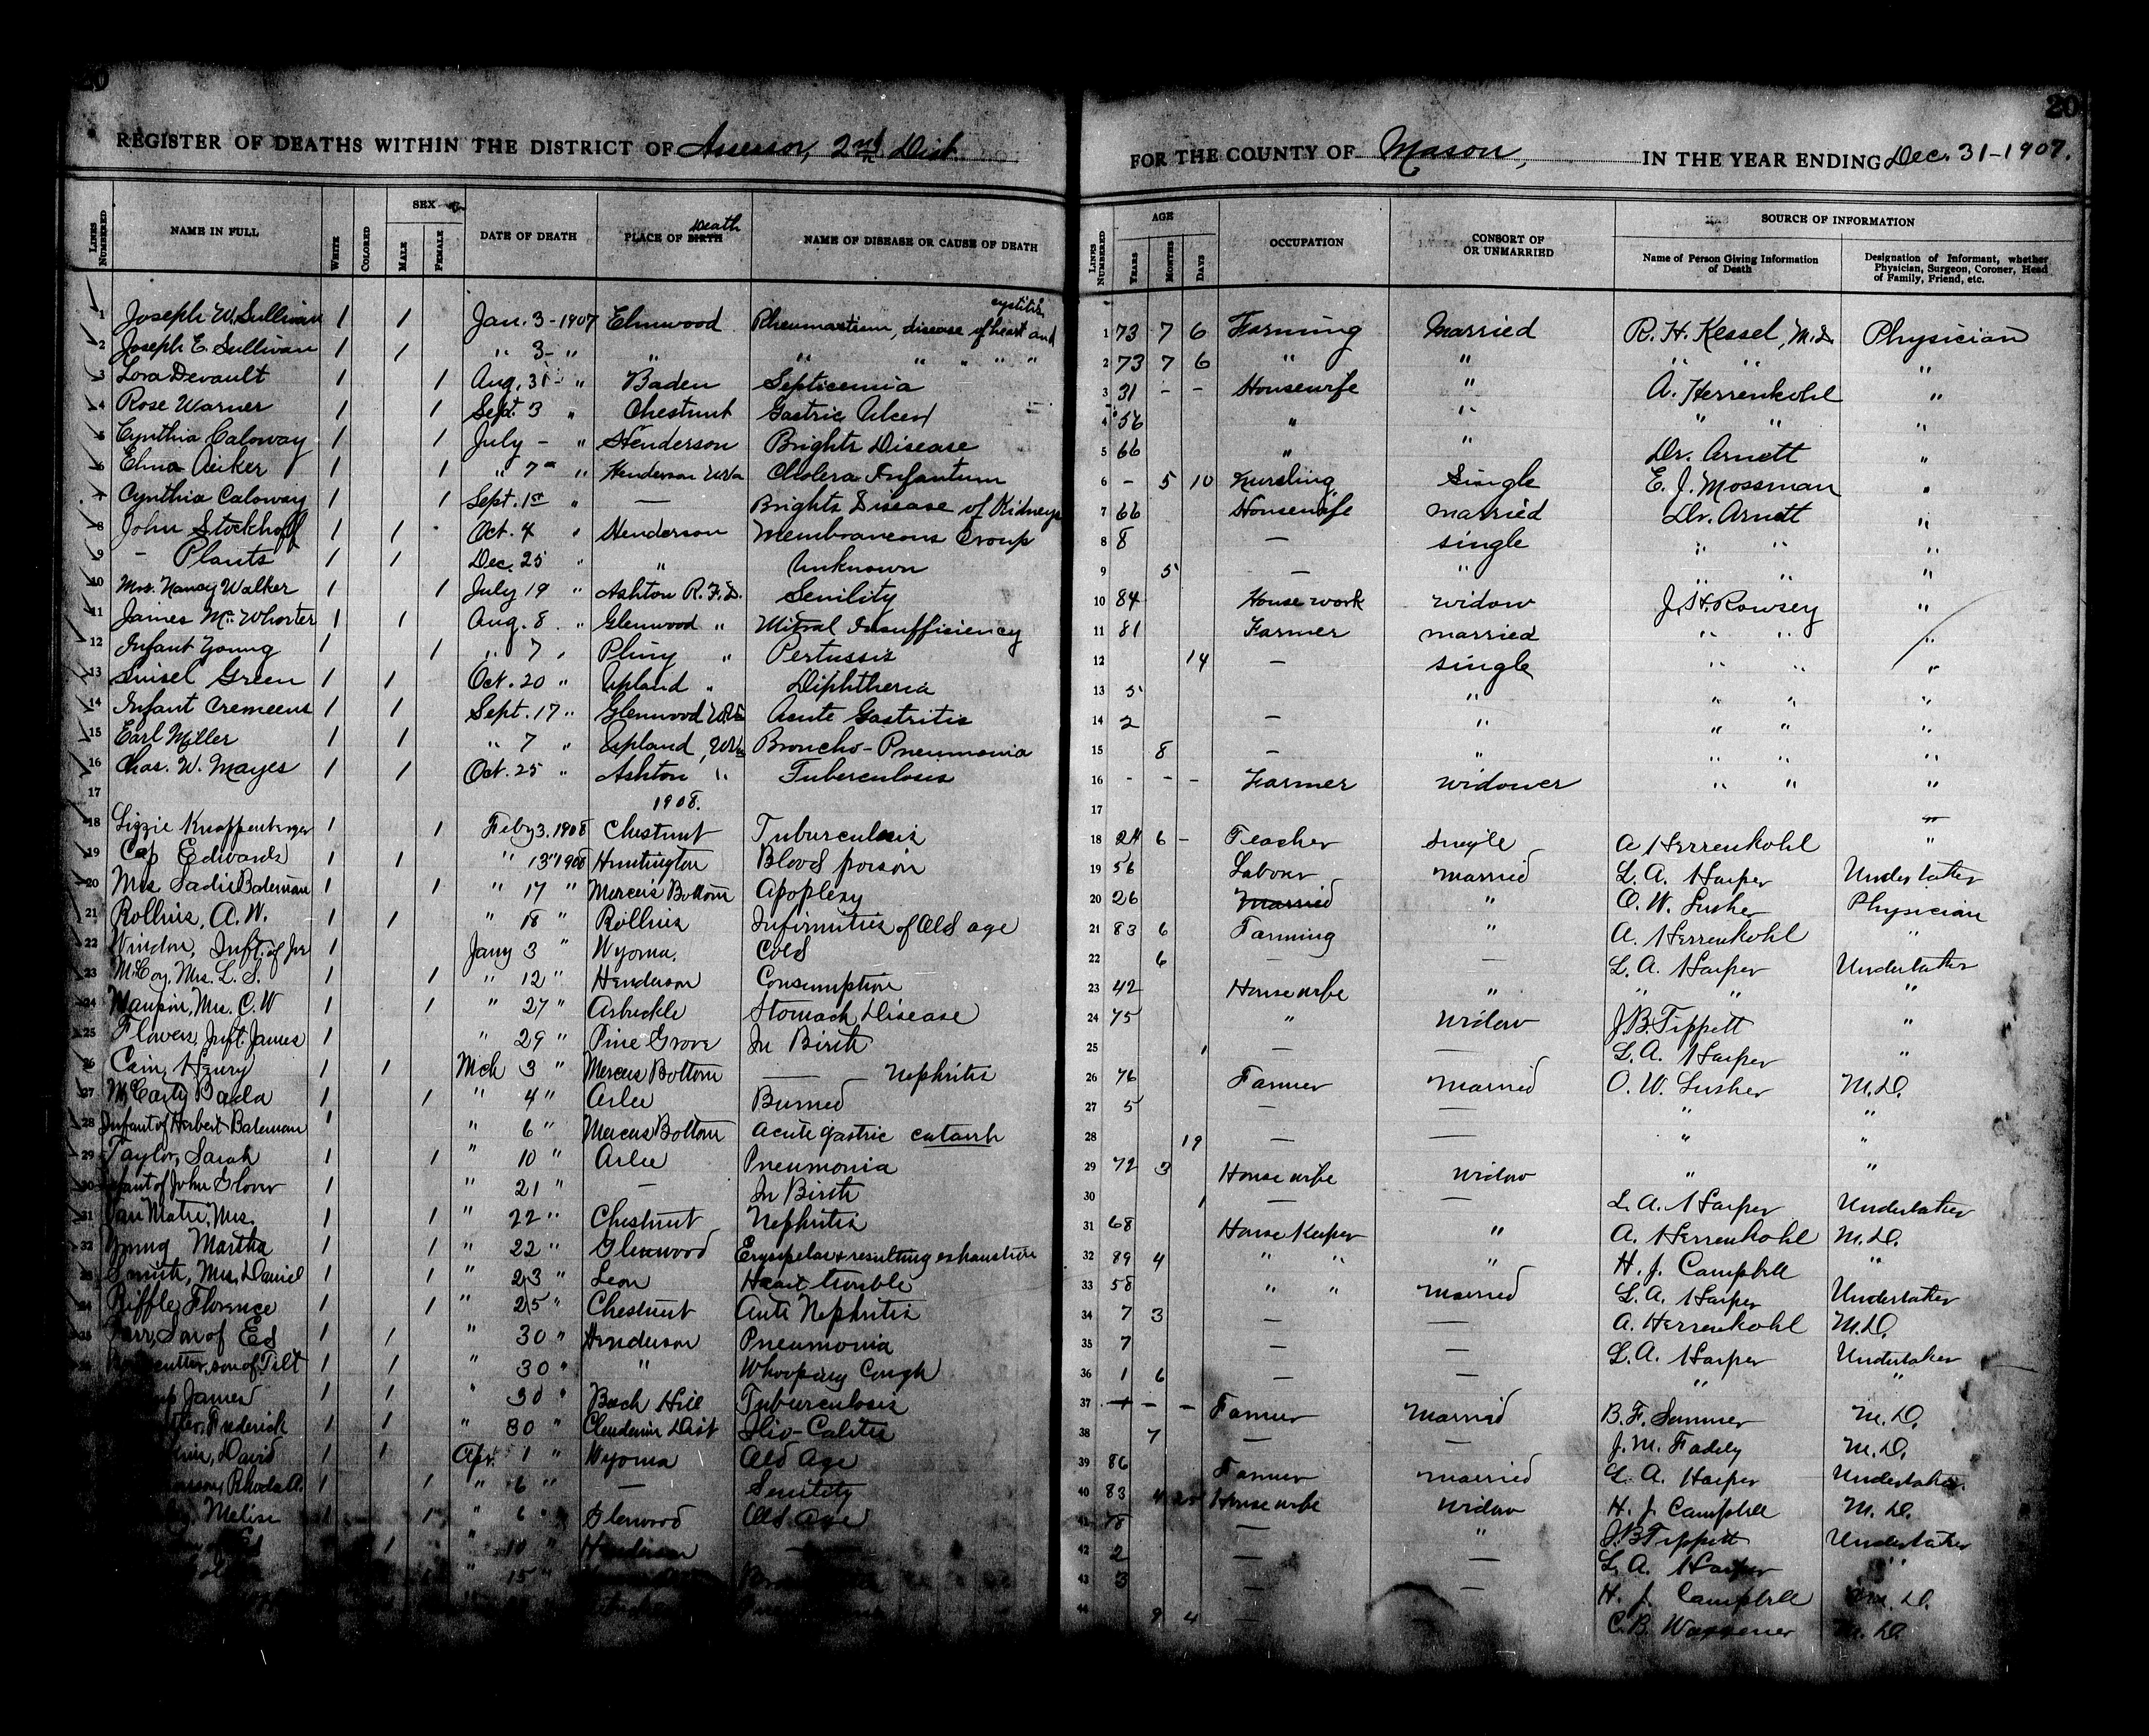 20
REGISTER OF DEATHS WITHIN THE DISTRICT OF Assessor, 2nd Dist.
LINES NUMBERED
NAME IN FULL
WHITE
COLORED
SEX
MALE
FEMALE
DATE OF DEATH
PLACE OF BIRTH Death
NAME OF DISEASE OR CAUSE OF DEATH
1 Joseph W. Sullivan 1 1 Jan. 3-1907 Elmwood Rheumastism, disease of heart and cystitis
2 Joseph E. Sullivan 1 1 " 3- " " " " " " "
3 Lora Devault 1 1 Aug. 31- " Baden Septicemia
4 Rose Warner 1 1 Sept. 3 " Chestnut Gastric Ulcer
5 Cynthia Caloway 1 1 July - " Henderson Brights Disease
6 Elma Aiker 1 1 " 7" " Henderson W.Va Cholera Infantum
7 Cynthia Caloway 1 1 Sept. 1st " — Brights Disease of Kidneys
8 John Stockhoff 1 1 Oct. 4 " Henderson Membraneous Croup
9 – Plants 1 1 Dec. 25 " " Unknown
10 Mrs. Nancy Walker 1 1 July 19 " Ashton R.F.D. Senility
11 James McWhorter 1 1 Aug. 8 " Glenwood " Mitral Insufficiency
12 Infant Young 1 1 " 7 " Pliny " Pertussis
13 Green 1 1 Oct. 20 " Upland " Diphtheria
14 Infant Cremeens 1 1 Sept. 17 " Glenwood W.Va Acute Gastritis
15 Earl Miller 1 1 " 7 " Upland, W.Va Broncho-Pneumonia
16 Chas. W. Mayes 1 1 Oct. 25 " Ashton " Tuberculosis
17 1908.
18 Lizzie Knoppenberger 1 1 Feby 3, 1908 Chestnut Tuburculosis
19 Cap Edwards 1 1 " 13" 1908 Huntington Blood poison
20 Mrs Sadie Bateman 1 1 " 17 " Mercers Bottom Apoplexy
21 Rollins, A. W. 1 1 " 18 " Rollins Infirmities of Old age
22 Windon, Inft. of Jno 1 Jany 3 " Wyoma. Cold
23 McCoy, Mrs. L. S. 1 1 " 12 " Henderson Consumption
24 Maupin, Mrs. C. W 1 1 " 27 " Arbuckle Stomach Disease
25 Flowers, Inft. James 1 " 29 " Pine Grove In Birth
26 Cain, Henry 1 1 Mch 3 " Mercers Bottom — Nephritis
27 McCarty Bada 1 1 " 4 " Arlee Burned
28 Infant of Herbert Bateman 1 " 6 " Mercers Bottom Acute gastric catarrh
29 Taylor, Sarah 1 1 " 10 " Arlee Pneumonia
30 Infant of John Glover 1 " 21 " — In Birth
31 Van Matre, Mrs. 1 1 " 22 " Chestnut Nephritis
32 Young Martha 1 1 " 22 " Glenwood Erysipelas & resulting exhaustion
33 Smith, Mrs. Daniel 1 1 " 23 " Leon Heart trouble
34 Riffle, Florence 1 1 " 25 " Chestnut Aute Nephritis
35 Son of Ed 1 1 " 30 " Henderson Pneumonia
son of Tilt 1 1 " 30 " " Whooping Cough
James 1 1 " 30 " Beech Hill Tuburculosis
Frederick 1 1 " 30 " Clendenin Dist Ilio-Calitis
David 1 1 Apr. 1 " Wyoma Old Age
Rhoda A. 1 1 " 6 " — Senility
Melisa 1 1 " 6 " Glenwood Old Age
1 " 10 " Henderson —
" 15 "
20
FOR THE COUNTY OF Mason, IN THE YEAR ENDING Dec. 31-1907.
LINES NUMBERED
AGE
YEARS
MONTHS
DAYS
OCCUPATION
CONSORT OF OR UNMARRIED
SOURCE OF INFORMATION
Name of Person Giving Information of Death
Designation of Informant, whether Physician, Surgeon, Coroner, Head of Family, Friend, etc.
1 73 7 6 Farming Married R. H. Kessel, M.D. Physician
2 73 7 6 " " " " "
3 31 - - Housewife " A. Herrenkohl "
4 56 " " " " "
5 66 " " Dr. Arnett "
6 - 5 10 Nursling Single E. J. Mossman "
7 66 Housewife married Dr. Arnett "
8 8 — single " " "
9 5 — " " " "
10 84 House work widow J. H. Rowsey "
11 81 Farmer married " " "
12 14 — single " " "
13 5 " " " "
14 2 — " " " "
15 8 — " " " "
16 - - - Farmer widower " " "
17
18 24 6 - Teacher Single A. Herrenkohl "
19 56 Labour married L. A. Harper Undertaker
20 26 Married " O. W. Lusher Physician
21 83 6 Farming " A. Herrenkohl "
22 6 — — L. A. Harper Undertaker
23 42 Housewife " " " "
24 75 " Widow J. B. Tippett "
25 1 — — L. A. Harper "
26 76 Farmer Married O. W. Lusher M.D.
27 5 — — " "
28 19 — — " "
29 72 3 Housewife Widow " "
30 1 — — L. A. Harper Undertaker
31 68 House Keeper " A. Herrenkohl M.D.
32 89 4 " " " H. J. Campbell "
33 58 " " Married L. A. Harper Undertaker
34 7 3 — — A. Herrenkohl M.D.
35 7 — — L. A. Harper Undertaker
36 1 6 — — " "
37 - - - Farmer Married B. F. Sommer M.D.
38 7 — — J. M. Fadely M.D.
39 86 Farmer Married L. A. Harper Undertaker.
40 83 4 20 Housewife Widow H. J. Campbell M.D.
41 78 — " J. B. Tippett Undertaker
42 2 — — L. A. Harper "
43 3 — — H. J. Campbell M.D.
44 9 4 — C. B. Waggener M.D.